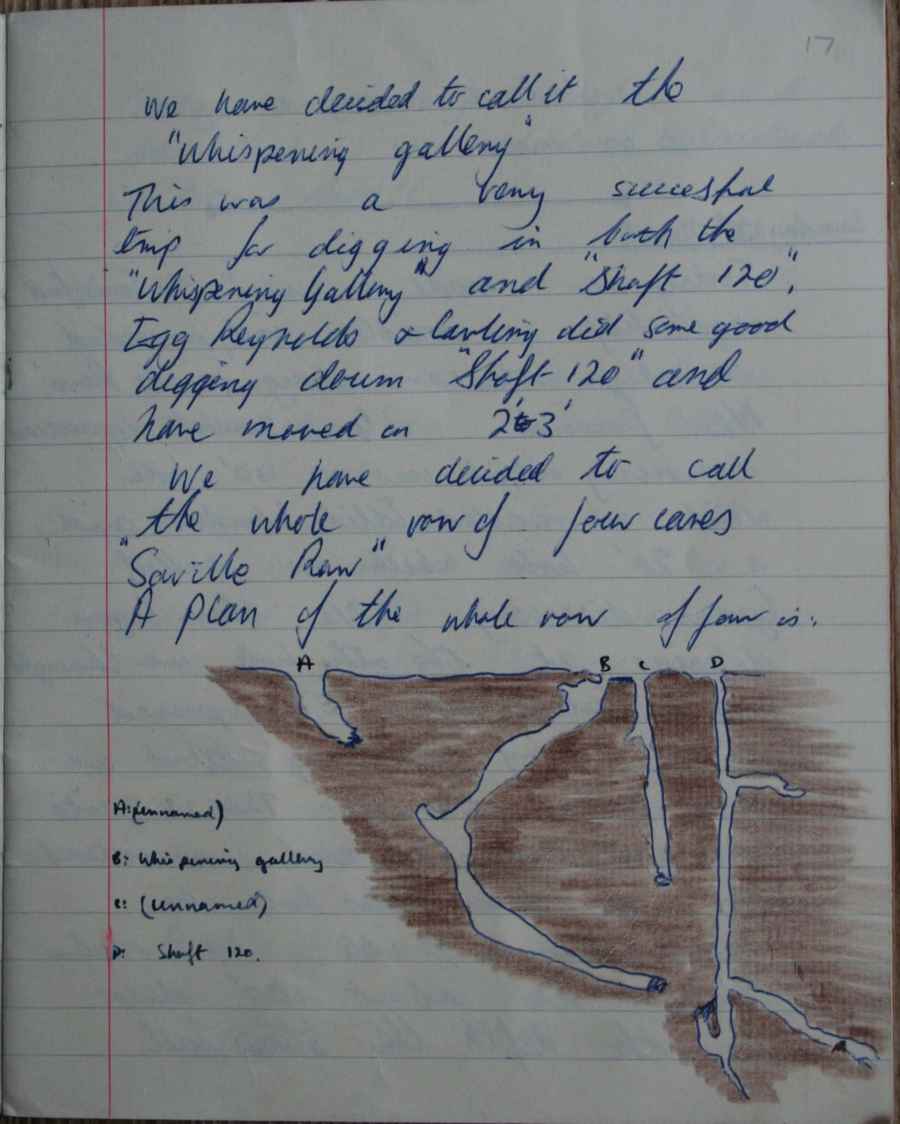 17
We have decided to call it the
"Whispering gallery"
This was a very succesful
trip for digging in both the
"Whispering Gallery" and "Shaft 120".
Egg Reynolds & did some good
digging down "Shaft 120" and
have moved on 2' to 3'
We have decided to call
the whole row of four caves
"Saville Row"
A plan of the whole row of four is.
A B C D
A: (unnamed)
B: Whispering gallery
C: (unnamed)
D: Shaft 120.